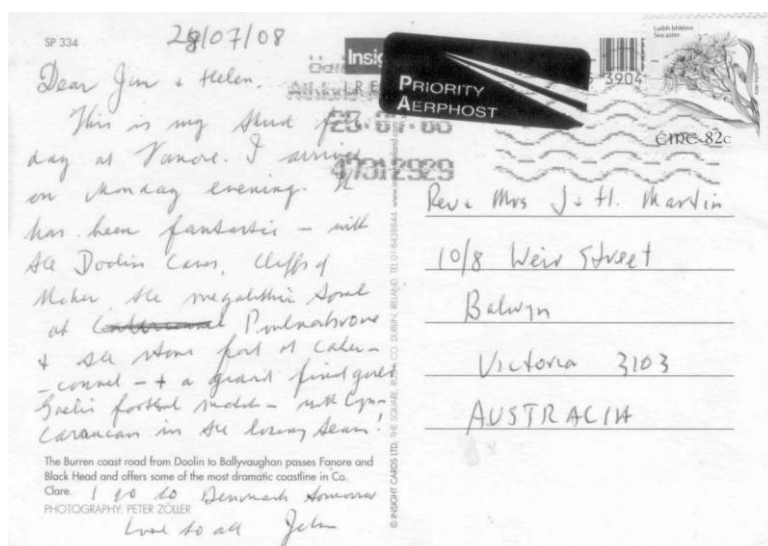 SP 334
28/07/08
Dear Jim & Helen,
This is my third f
day at Fanore. I arrived
on Monday evening. It
has been fantastic – with
the Doolin Caves, Cliffs of
Moher, the megalithic tomb
at Poulnabrone
& the stone fort of Caher-
-connel – & a grand final girls
Gaelic football match – with
in the losing team!
The Burren coast road from Doolin to Ballyvaughan passes Fanore and
Black Head and offers some of the most dramatic coastline in Co.
Clare.
I go to Denmark tomorrow
PHOTOGRAPHY: PETER ZÖLLER
Love to all John
© INSIGHT CARDS LTD, THE SQUARE, CO. DUBLIN, IRELAND. TEL 01-8438844
Insig
PRIORITY
AERPHOST
3904
47312929
Luibh bhléine
Sea aster
ÉIRE 82c
Rev & Mrs J & H. Martin
10/8 Weir Street
Balwyn
Victoria 3103
AUSTRALIA